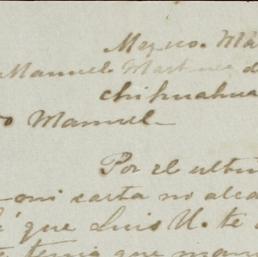 Mexico. Ma
Manuel Martinez d
Chihuahua
o Manuel
Por el ultim
mi carta no alca
é que Luis U. te
tenia que man